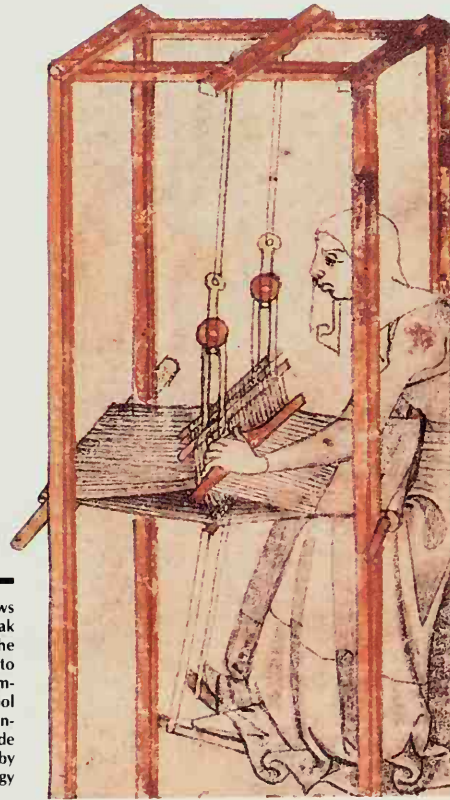 ws
ak
he
to
m-
ool
n-
de
by
gy